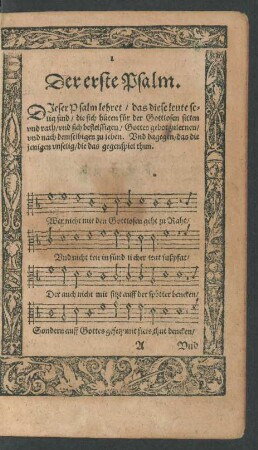 1
Der erste Psalm.
DIeser Psalm lehret / das diese leute se-
lig sind / die sich hüten für der Gottlosen sitten
vnd rath / vnd sich befleissigen / Gottes gebot zulernen /
vnd nach demselbigen zu leben. Vnd dagegen / das die
jenigen vnselig / die das gegenspiel thun.
Wer nicht mit den Gottlosen geht zu Rahte /
Vnd nicht trit in sünd licher leut fußpfat /
Der auch nicht mit sitzt auff der spötter bencken /
Sondern auff Gottes gesetz mit fleis thut dencken /
A Vnd